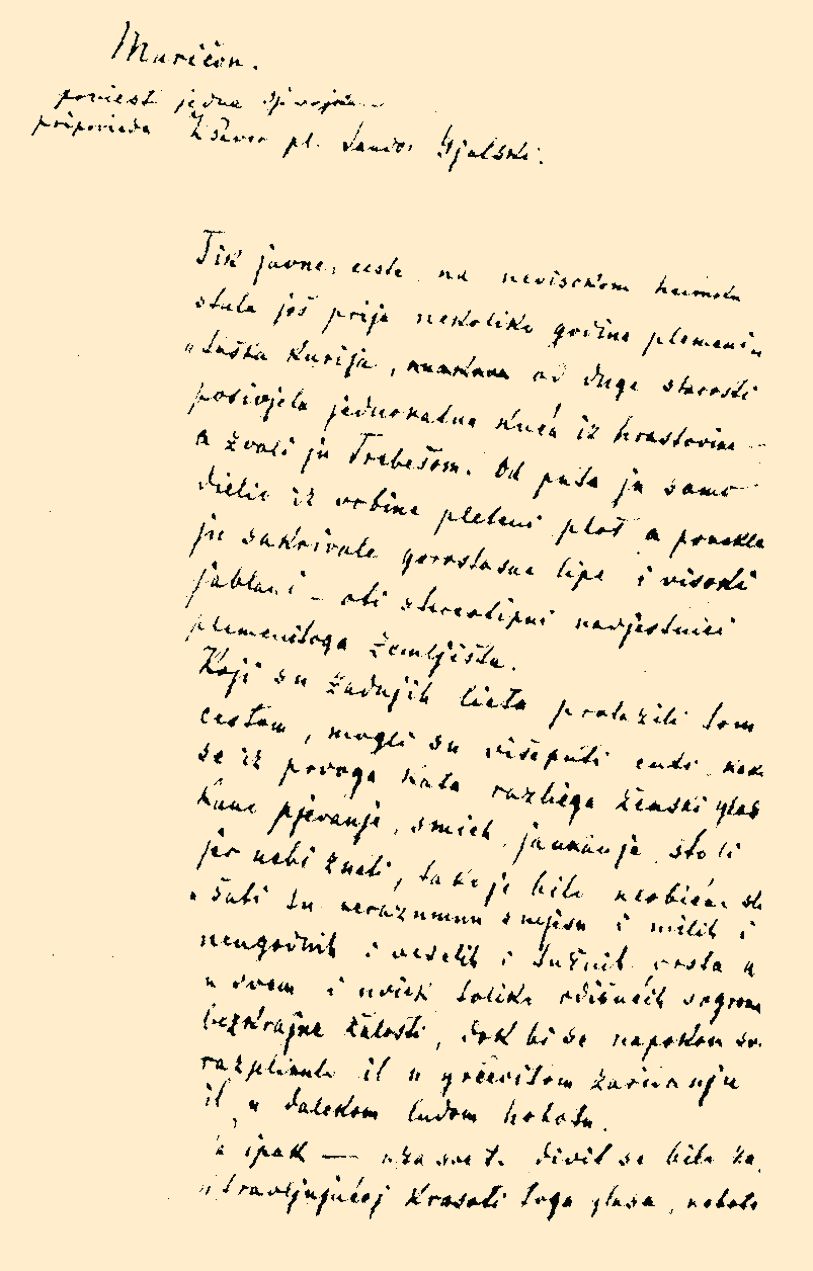 Maričon.
poviest jedna
pripovieda Kšaver pl. Šandor Gjalski.
Tik javne ceste na nevisokom humonku
stala još prije nekoliko godina plemeni
taška kurija, od duge starosti
posivjela jednokatna kuća iz hrastovine —
a zvali ju Trebešom. Od puta ju samo
dielio iz vrbine pleteni plot a ponekle
ju sakrivale gorostasne lipe i visoki
jablani – oti stereotipni navjestnici
plemenitoga zemljišta.
Koji su zadnjih lieta prolazili tom
cestom, mogli su višeputi čuti kako
se iz prvoga kata razliega ženski glas
Kano pjevanje, smieh, jaukanje što li
jer nebi znati, tako je bilo neobično
šati tu nerazumnu smjesu i milih i
neugodnih i veselih i tužnih vrsta a
u svem i uviek toliko odišućih ogromne
bezkrajne žalosti, dok bi se napokon sve
razplinulo il u grčevitom zaridanju
il u dalekom ludom hohotu.
Pa ipak — uza sve t. divit se bilo za
travljujućoj krasoti toga glasa, nehote